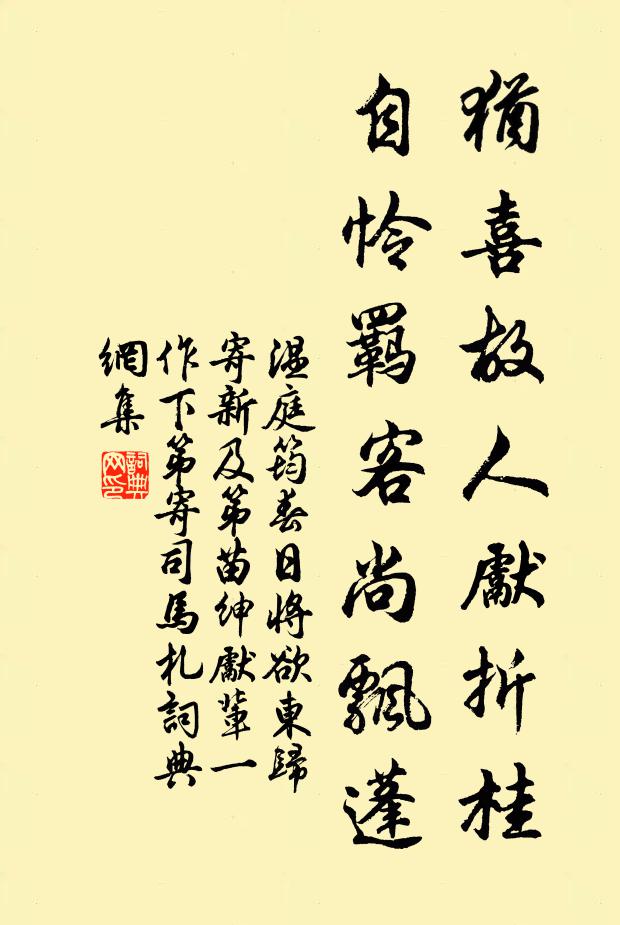 猶喜故人獻折桂
自怜羈客尚飄蓬
温庭筠春日將欲東歸
寄新及第苗紳獻輩一
作下第寄司馬札詞典
網集
詞典
网印